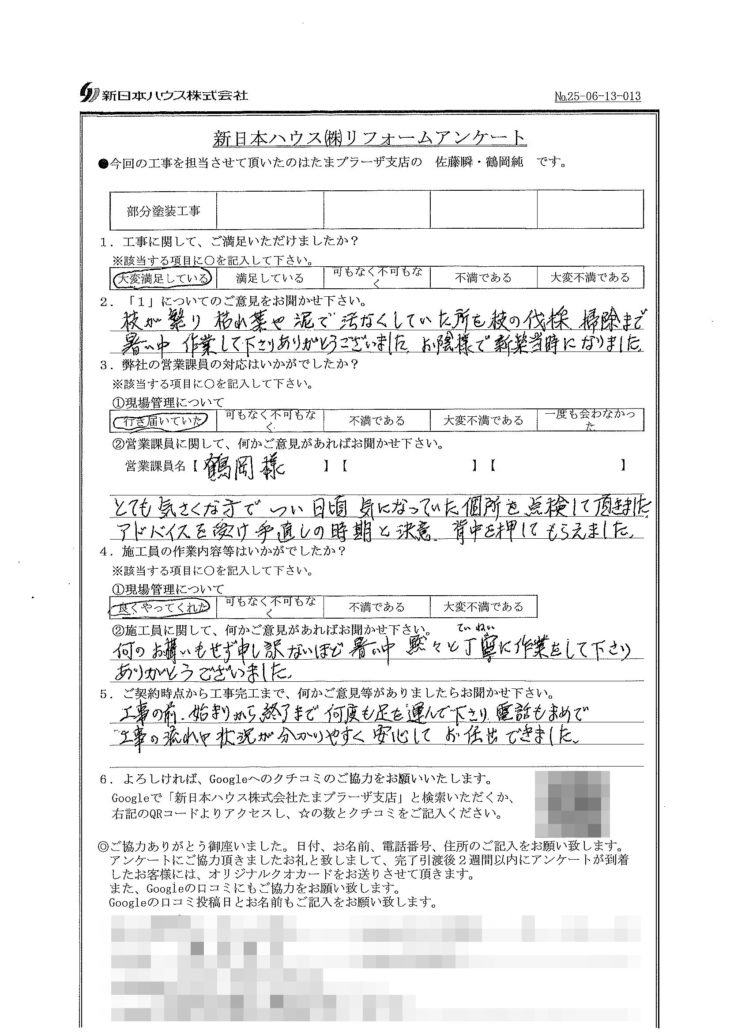 新日本ハウス株式会社
No.25-06-13-013
新日本ハウス㈱リフォームアンケート
●今回の工事を担当させて頂いたのはたまプラーザ支店の 佐藤瞬・鶴岡純 です。
部分塗装工事
1. 工事に関して、ご満足いただけましたか?
※該当する項目に○を記入して下さい。
大変満足している 満足している 可もなく不可もなく 不満である 大変不満である
2. 「1」についてのご意見をお聞かせ下さい。
枝が繁り 枯れ葉や 泥で 活なくしていた所も 枝の伐採 掃除まで
暑い中 作業して下さりありがとうございました。お陰様で 新築当時になりました。
3. 弊社の営業課員の対応はいかがでしたか?
※該当する項目に○を記入して下さい。
①現場管理について
行き届いていた 可もなく不可もなく 不満である 大変不満である 一度も会わなかった
②営業課員に関して、何かご意見があればお聞かせ下さい。
営業課員名【 鶴岡様 】【 】【 】
とても 気さくな方で つい 日頃 気になっていた個所を 点検して頂きました
アドバイスを受け 手直しの時期と決意。背中を押してもらえました。
4. 施工員の作業内容等はいかがでしたか?
※該当する項目に○を記入して下さい。
①現場管理について
良くやってくれた 可もなく不可もなく 不満である 大変不満である
②施工員に関して、何かご意見があればお聞かせ下さい。
ていねい
何のお構いもせず申し訳ないほど 暑い中 黙々と丁寧に作業をして下さり
ありがとうございました。
5. ご契約時点から工事完工まで、何かご意見等がありましたらお聞かせ下さい。
工事の前、始まりから終了まで 何度も足を運んで下さり 電話もまめで
工事の流れや 状況が 分かりやすく 安心して お任せできました。
6. よろしければ、Googleへのクチコミのご協力をお願いいたします。
Googleで「新日本ハウス株式会社たまプラーザ支店」と検索いただくか、
右記のQRコードよりアクセスし、☆の数とクチコミをご記入ください。
◎ご協力ありがとう御座いました。日付、お名前、電話番号、住所のご記入をお願い致します。
アンケートにご協力頂きましたお礼と致しまして、完了引渡後2週間以内にアンケートが到着
したお客様には、オリジナルクオカードをお送りさせて頂きます。
また、Googleの口コミにもご協力をお願い致します。
Googleの口コミ投稿日とお名前もご記入をお願い致します。